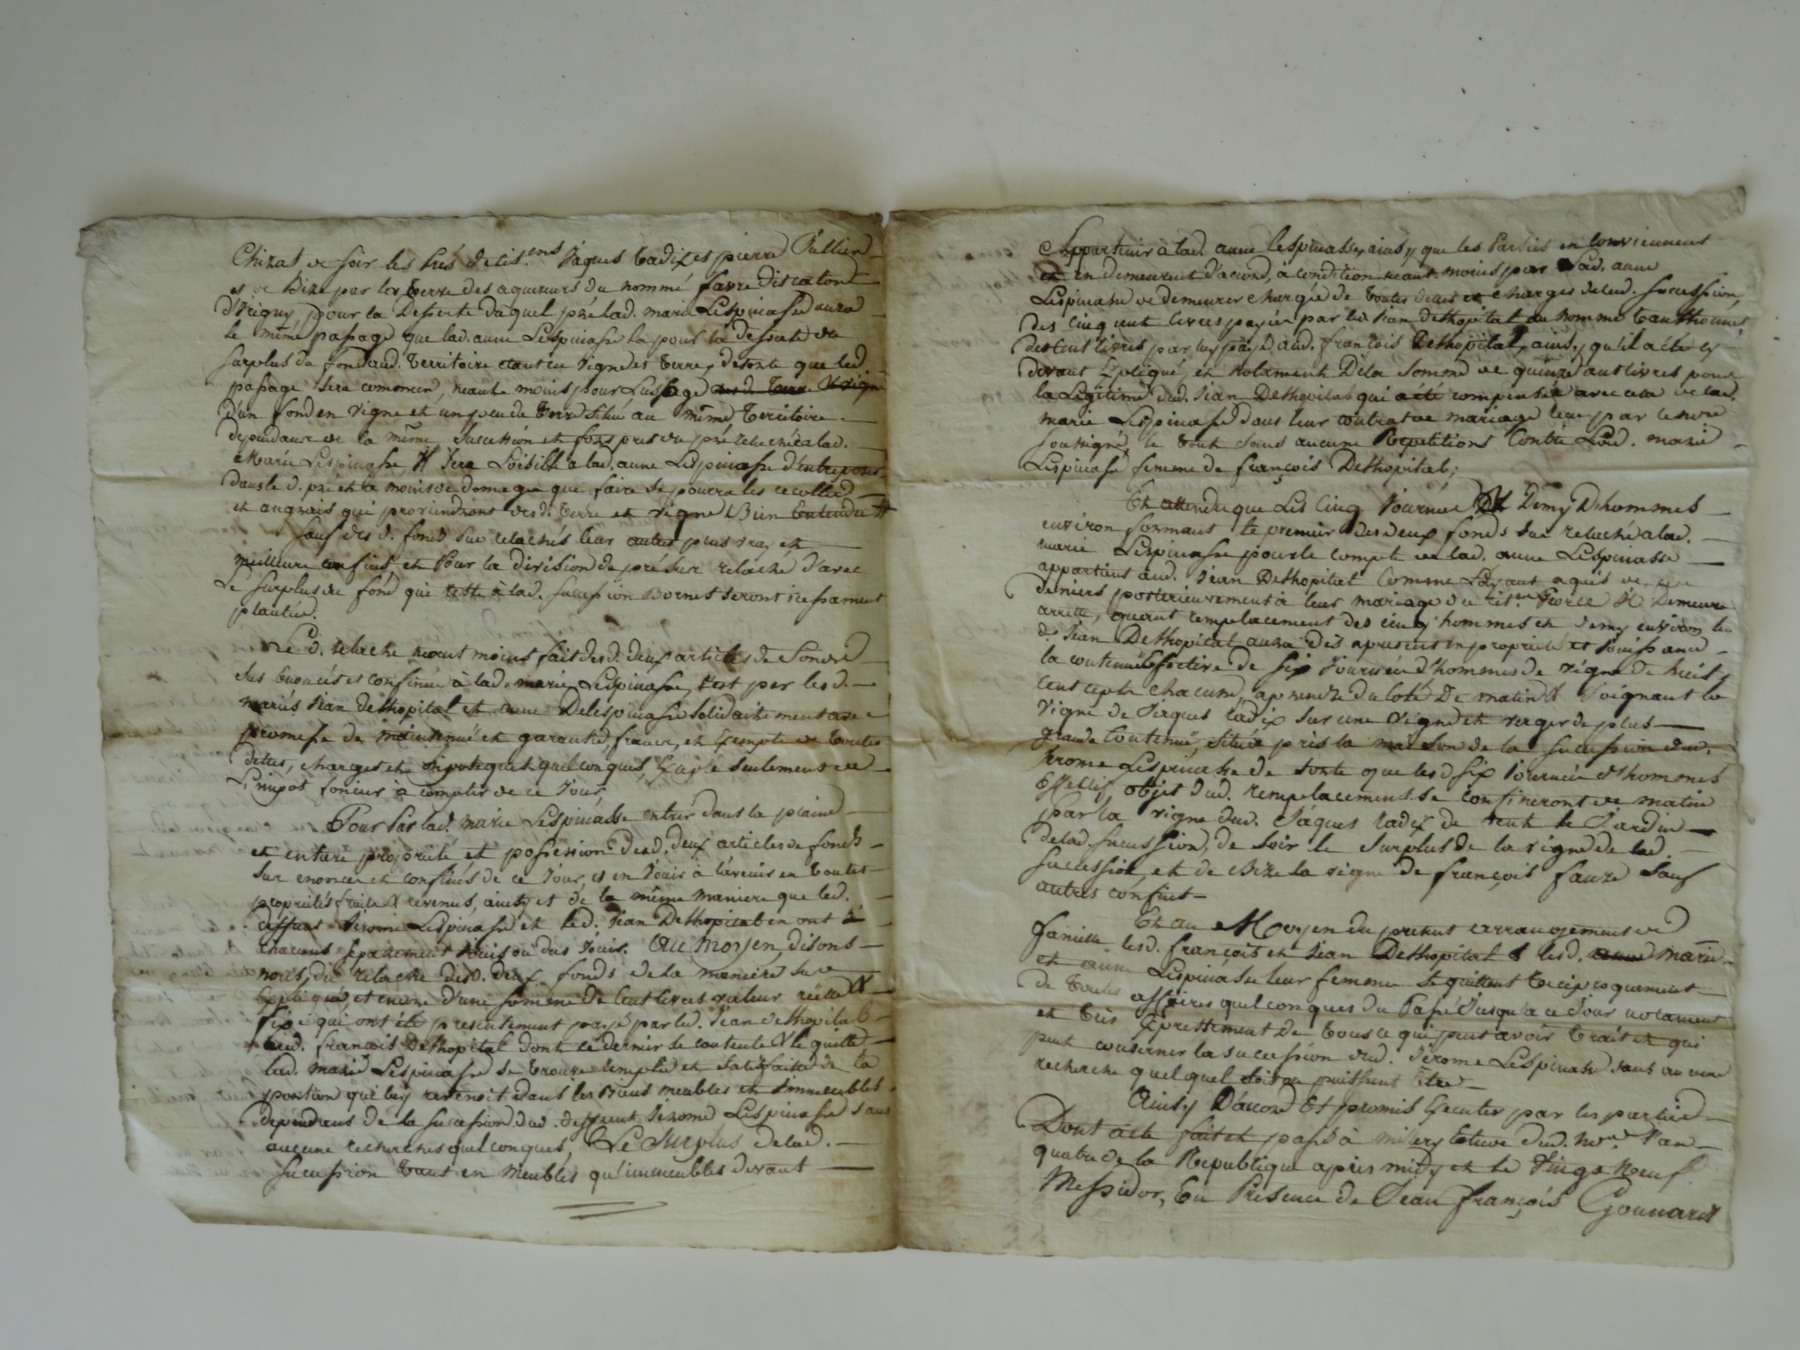 Chizat de soir les prés de cit.ens Jaques Cadix et pierre Jullien
et de bize par les terre des aquereurs du nommé favre distalond
d'Irigny, pour la desserte duquel pré lad. marie Lespinasse aura
le même passage que lad. anne Lespinasse la pour la desserte du
surplus du fond aud. territoire etant en vigne et terre, desorte que led.
passage sera comencer, neant moins pour l'usage
d'un fond en vigne et un peu de terre situé au même territoire
dependant de la même succession et fors pres du pré relaché a lad.
Marie Lespinasse Il sera loisible a lad. anne Lespinasse d'entreposer
dans le d. pré et a moins de domage que faire se pourra les recoltes
et angrais qui proviendront desd. terre et vigne Bien Entendu
sauf des d. fonds sur relachés leur autres plus vray et
meilleure confins et Pour la division du pré sur relaché d'avec
Le surplus du fond qui reste à lad. succession Bornes seront incessament
plantées.
Le d. relache neant moins fait desd. deux articles de fonds
sus énoncés et confinés à lad. marie Lespinasse, l'est par les d.
mariés Jean dethopital et anne Delespinasse solidairement avec
promesse de maintenue et garantie, franc, et Exempts de toutes
dettes, charges et hipoteques quelconques, Excepté seulement de
L'impot foncier a compter de ce Jour,
Pour Par lad. marie Lespinasse entrer dans la plaine
et entiere propriété et possession desd. deux articles de fonds
sur enoncés et confinés de ce Jour, et en Jouir à l'avenir en toutes
proprietés fruits & revenus, ainsy et de la même maniere que led.
deffunt Jerome Lespinasse et led. Jean Dethopital en ont
chacuns séparément Jouis ou dus Jouir. Au Moyen, disons
nous, du relache desd. deux fonds de la maniere sur
Expliquée, et encore d'une somme de Cent livres valeur réelle &
fixe qui ont été presentement payé par led. Jean dethopital
aud. françois Dethopital dont ce dernier se contente & le quitte
lad. marie Lespinasse se trouve remplie et satisfaite de la
portion qui luy revenoit dans les Biens meubles et immeubles
dependans de la succession dud. deffunt Jerome Lespinasse sans
aucune recherches quelconques, Le Surplus delad.
succession tout en meubles qu'immeubles devant
Appartenir à lad. anne lespinasse, ainsy que les Parties en conviennent
et en demeurent d'acord, à condition neant moins par lad. anne
Lespinasse de demeurer chargée de toutes dettes et charges de lad. succession,
des cinq cent livres payées par led. Jean dethopital au nommé
des cent livres par luy payé aud. françois Dethopital, ainsy qu'il a été cy
devant Expliqué, et notament De la somme de quinze cent livres pour
la Legitime dud. Jean Dethopital qui a été compensée avec celle de lad.
marie Lespinasse dans leur contrat de mariage reçu par le notre
soussigné, le tout sans aucune Repetitions Contre Lad. marie
Lespinasse femme de françois Dethopital;
Et attendu que Les Cinq Journée & Demy D'hommes
environ formant le premier des deux fonds sur relaché a lad.
marie Lespinasse pour le compte de lad. anne Lespinasse
appartient aud. Jean Dethopital Comme L'ayant aquis de ses
deniers posterieurement à leur mariage du cit.en Il demeure
arretté, qu'en remplacement des cinq hommes et demy environ led.
d. Jean Dethopital aura dès apresent en propriété et Jouissance
la contenue Effective de six Journée d'hommes de vigne de huit
cent ceps chacune, a prendre du coté De matin & Joignant la
vigne de Jaques Cadix sur une vigne et verger de plus
grande Contenue, située près la maison de la succession dud.
Jerome Lespinasse de sorte que les d. six Journée d'hommes
Effectif objet dud. remplacement se confineront de matin
par la vigne dud. Jaques Cadix de vent le Jardin
de lad. succession, de soir le surplus de la vigne de lad.
succession, et de Bize la vigne de françois faure sauf
autres confins
Et au Moyen du present arrangement de
famille lesd. françois et Jean Dethopital & lesd. marie
et anne Lespinasse leur femme se quittent reciproquement
de toutes affaires quelconques du Passé Jusqu'à ce Jour notament
et très Expressement de tous ce qui peut avoir trait et qui
peut conserner la succession dud. Jerome Lespinasse sans aucune
recherche quelquel soit ou puissent Etre
Ainsy D'accord Et promis Executer par les parties
Dont acte fait et passé à millery Etude dud. no.re l'an
quatre de la Republique après midy et le Vingt Neuf
Messidor, En Presence de Jean françois Gonnard